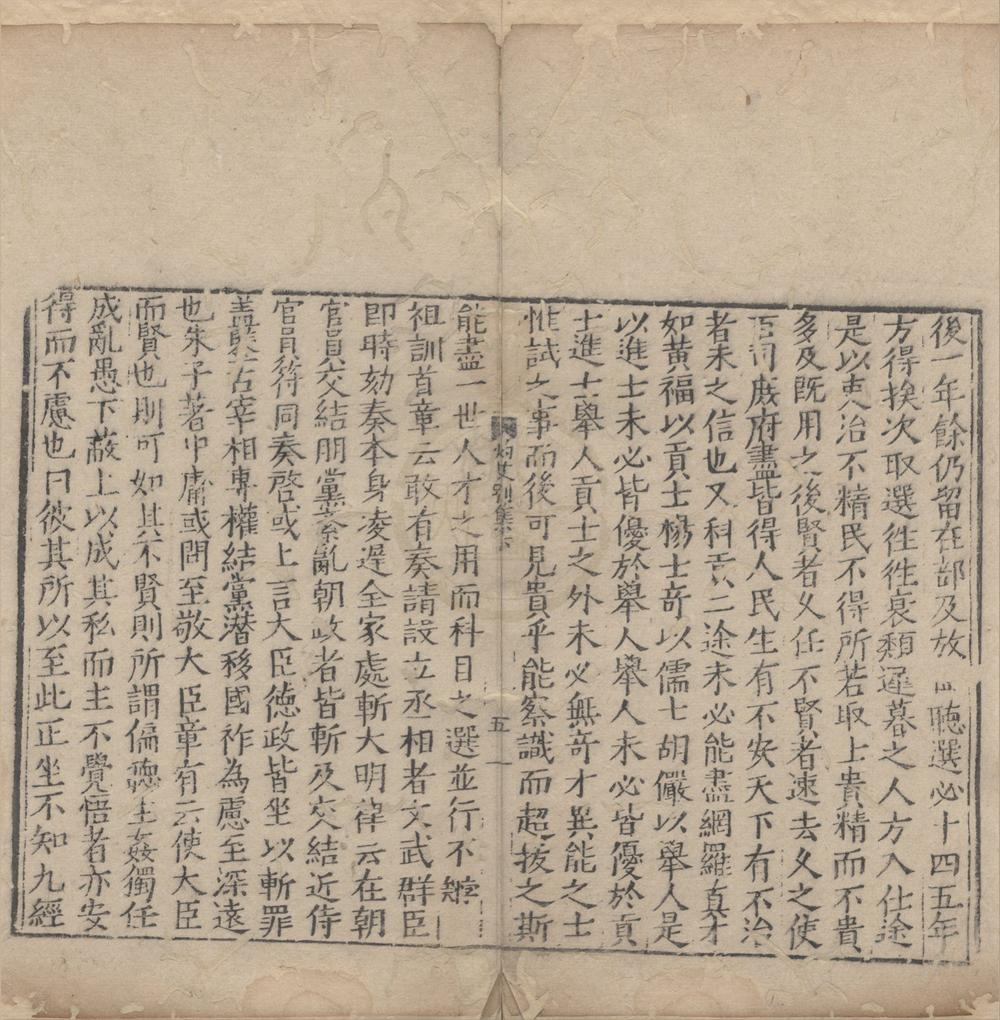 後一年餘仍留在部及放回聽選必十四五年
方得挨次取選往往衰頹遲暮之人方入仕途
是以吏治不精民不得所若取上貴精而不貴
多及既用之後賢者久任不賢者速去久之使
臣司庶府盡皆得人民生有不安天下有不治
者未之信也又科貢二途未必能盡網羅真才
如黃福以貢士楊士奇以儒士胡儼以舉人是
以進士未必皆優於舉人舉人未必皆優於貢
士進士舉人貢士之外未必無奇才異能之士
惟試之事而後可見貴乎能察識而超拔之斯
別集下
五
能盡一世人才之用而科目之選並行不
祖訓首章云敢有奏請設立丞相者文武群臣
即時劾奏本身凌遲全家處斬大明律云在朝
官員交結朋黨紊亂朝政者皆斬及交結近侍
官員符同奏啓或上言大臣德政皆坐以斬罪
蓋鑒古宰相專權結黨潛移國祚為慮至深遠
也朱子著中庸或問至敬大臣章有云使大臣
而賢也則可如其不賢則所謂偏聽生姦獨任
成亂愚下蔽上以成其私而主不覺悟者亦安
得而不慮也曰彼其所以至此正坐不知九經